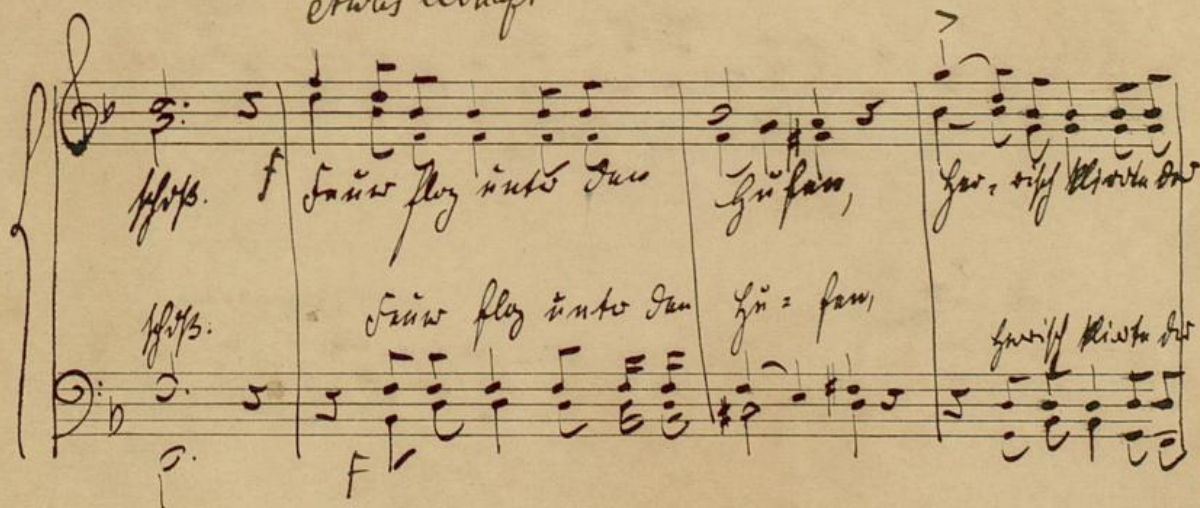 schoß. f Feuer flog unter den Hufen, Her = risch klirrte der
schoß. Feuer flog unter den Hu = fen, Herrisch klirrte der
F